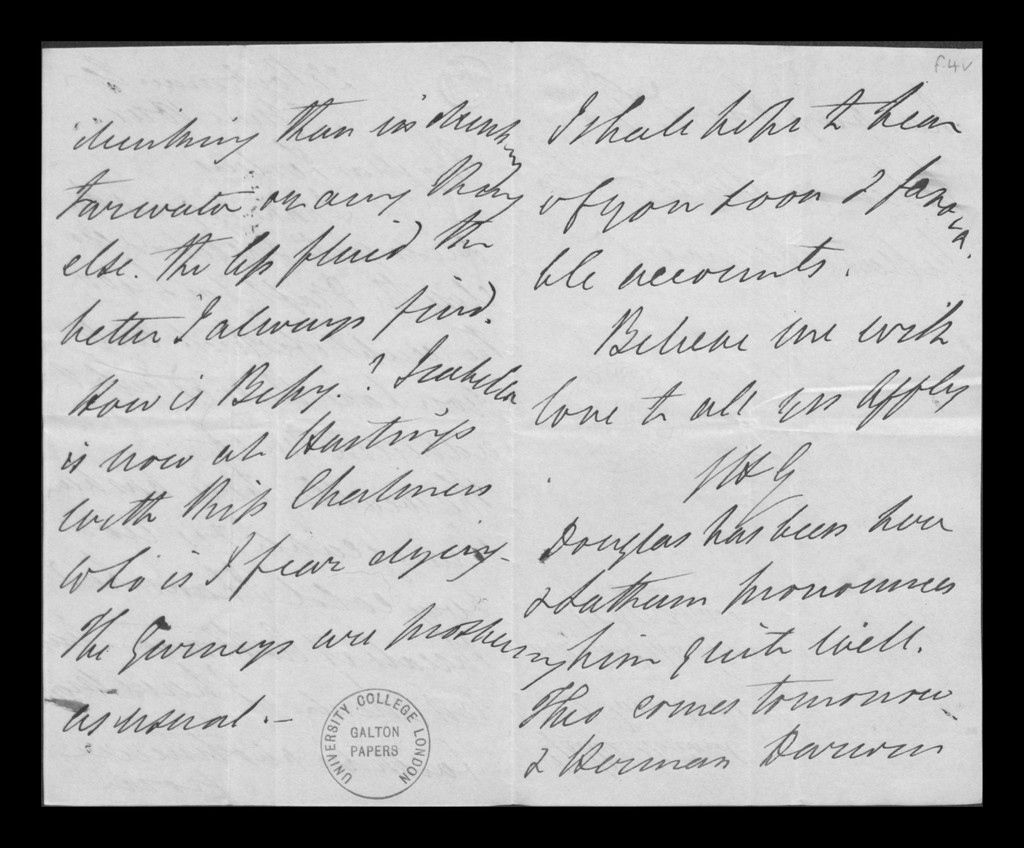 f.4v
drinking than in drinking
Tarwater or any thing
else. the less fluid the
better I always find.
How is Bessy? Isabella
is now at Hastings
with Miss Chalmers
who is I fear dying –
The Gurneys are prospering
as usual. –
UNIVERSITY COLLEGE LONDON
GALTON
PAPERS
I shall hope to hear
of you soon & favora
ble accounts.
Believe me with
love to all yrs affly
Douglas has been here
& Latham pronounces
him quite well.
Theo comes tomorrow
& Herman Darwin